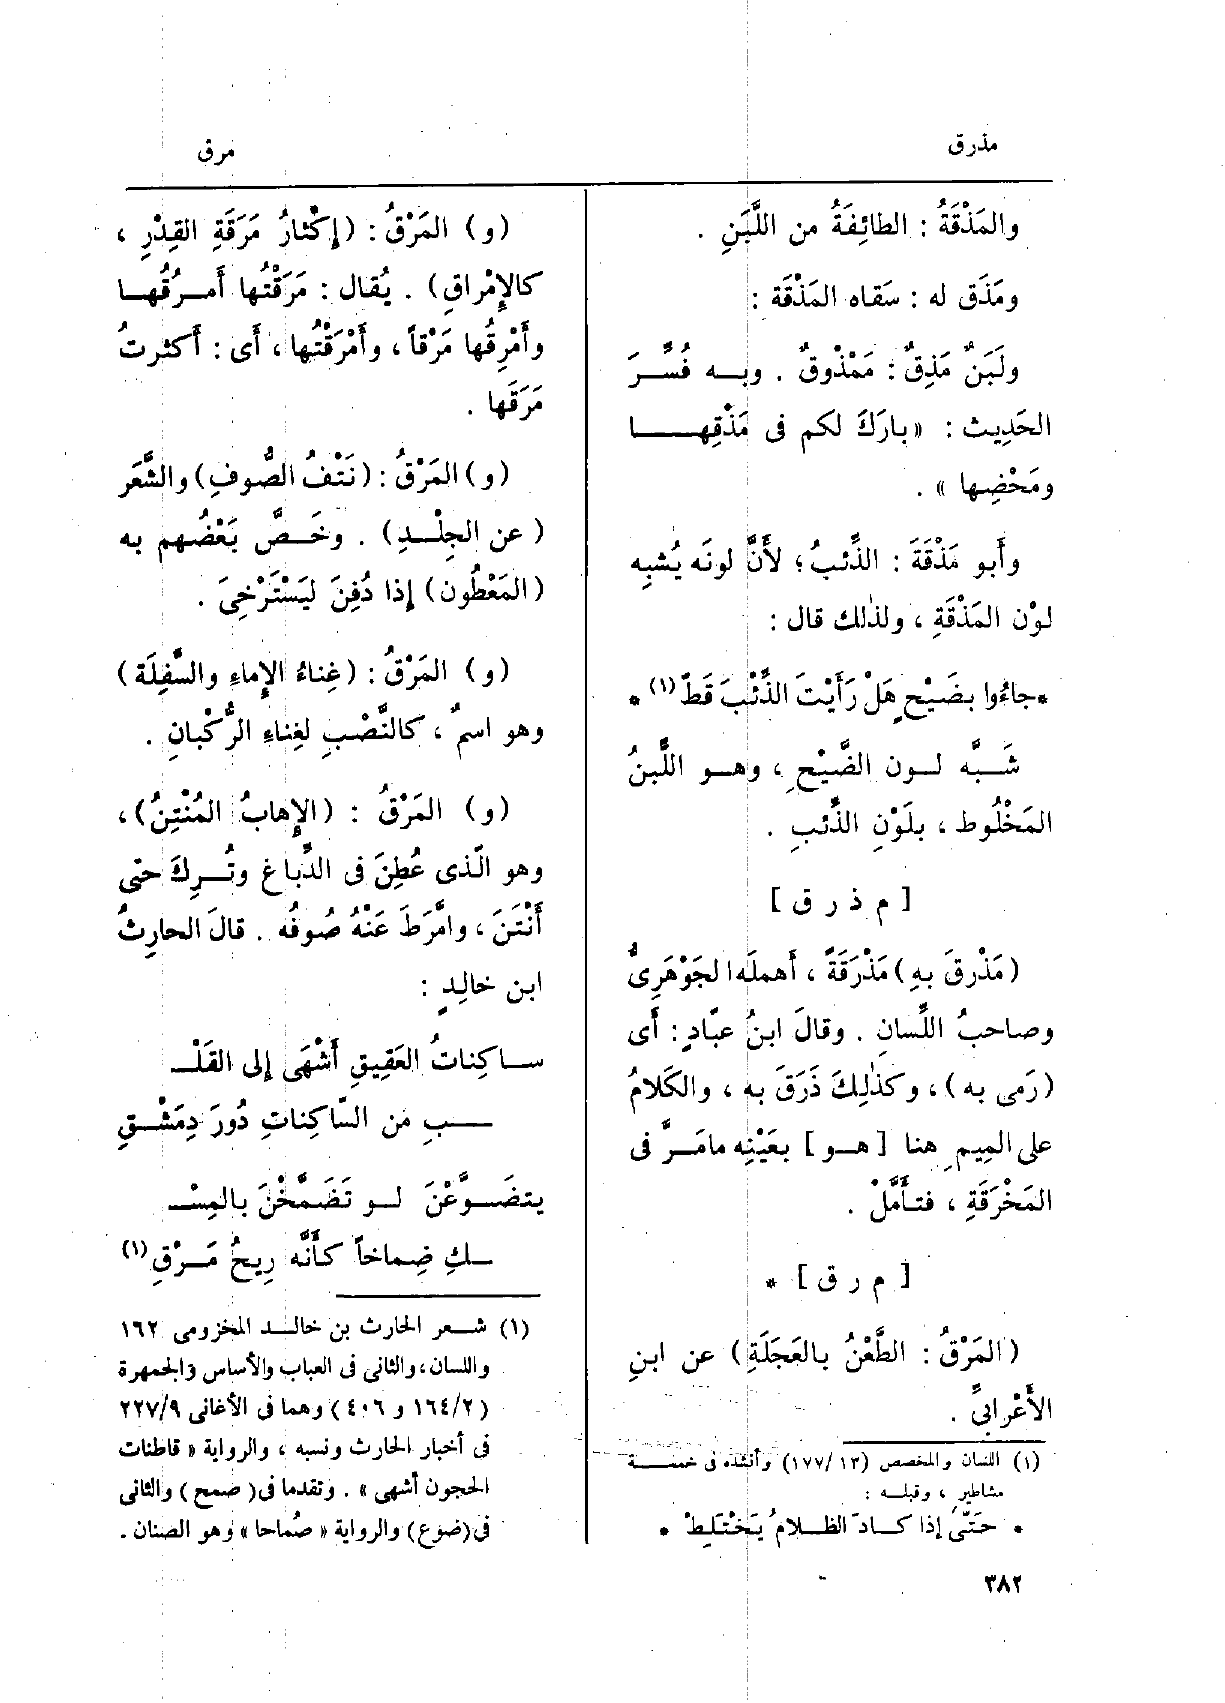 مذرق
مرق
والمَذْقَةُ : الطائِفَةُ من اللَّبَنِ .
ومَذَق له : سَقاه المَذْقَة :
ولَبَنٌ مَذِقٌ : مَمْذُوقٌ . وبه فُسِّرَ
الحَدِيث : « بارَكَ لكم فى مَذْقِها
ومَحْضِها » .
وأَبو مَذْقَةَ : الذِّئبُ ؛ لأَنَّ لونَه يُشبِه
لوْن المَذْقَةِ ، ولذٰلك قال :
*جاءُوا بضَيْحٍ هَلْ رَأَيْتَ الذِّئْبَ قَطّ (١) *
شَبَّه لون الضَّيْحِ ، وهو اللَّبنُ
المَخْلُوط ، بلَوْنِ الذِّئبِ .
[ م ذ ر ق ]
(مَذْرقَ بهِ) مَذْرَقَةً ، أَهملَه الجَوْهَرِىُّ
وصاحبُ اللِّسانِ . وقالَ ابنُ عبّادٍ : أَى
(رَمى به) ، وكذٰلِكَ ذَرَقَ به ، والكَلامُ
على المِيمِ هنا [ هو ] بعَيْنِه مامَرَّ فى
المَخْرَقَةِ ، فتأَمَّلْ .
[ م ر ق ] *
(المَرْقُ : الطَّعْنُ بالعَجَلَةِ) عن ابنِ
الأَعْرابىِّ .
(١) اللسان والمخصص (١٧٧/١٣) وأنشده فى خمسة
مشاطير ، وقبله :
* حَتَّىٰ إذا كادَ الظلامُ يَخْتَلِطْ *
٣٨٢
(و) المَرْقُ : (إِكْثارُ مَرَقَةِ القِدْرِ ،
كالإِمْراقِ) . يُقال : مَرَقْتُها أَمرُقُها
وأَمْرِقُها مَرْقاً ، وأَمْرَقْتُها ، أَى : أَكثرتُ
مَرَقَها .
(و) المَرْقُ : (نَتْفُ الصُّوفِ) والشَّعَر
(عن الجِلْدِ) . وخَصَّ بَعْضُهم به
(المَعْطُون) إذا دُفِنَ ليَسْتَرْخِىَ .
(و) المَرْقُ : (غِناءُ الإِماءِ والسَّفِلَة)
وهو اسمٌ ، كالنَّصْبِ لغِناءِ الرُّكْبانِ .
(و) المَرْقُ : (الإِهابُ المُنْتِنُ) ،
وهو الَّذى عُطِنَ فى الدِّباغِ وتُرِكَ حتى
أَنْتَنَ ، وامَّرَطَ عَنْهُ صُوفُه . قالَ الحارِثُ
ابن خالِدٍ :
ساكِناتُ العَقِيقِ أَشْهَى إلى القَلْـ
ـبِ مَن السّاكِناتِ دُورَ دِمَشْقِ
يتضَوَّعْنَ لو تَضَمَّخْنَ بالمِسْـ
ـكِ ضِماخاً كأَنَّه رِيحُ مَرْقِ (١)
(١) شعر الحارث بن خالد المخزومى ١٦٢
واللسان، والثانى فى العباب والأساس والجمهرة
(١٦٤/٢ و ٤٠٦) وهما فى الأغانى ٢٢٧/٩
فى أخبار الحارث ونسبه ، والرواية « قاطنات
الحجون أشهى » . وتقدما فى( صمح ) والثانى
فى (ضوع) والرواية « صُماحا » وهو الصنان .